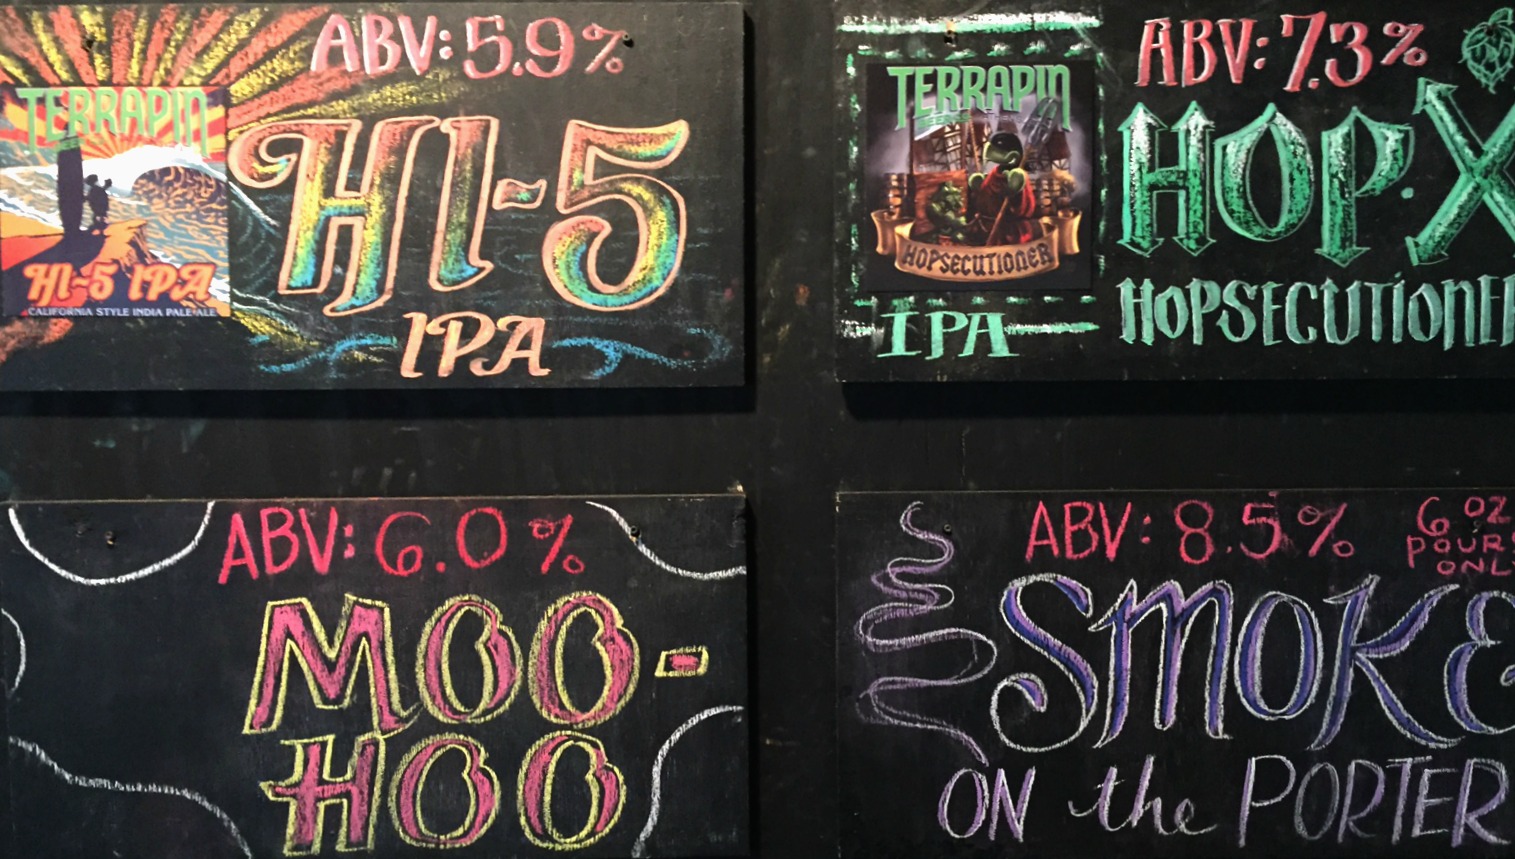 ABV: 5.9%
TERRAPIN
HI-5
HI-5 IPA
CALIFORNIA STYLE INDIA PALE ALE
IPA
ABV: 7.3%
TERRAPIN
HOP·X
HOPSECUTIONER
HOPSECUTIONE
IPA
ABV: 6.0%
MOO-
HOO
ABV: 8.5%
6 OZ
POURS
ONLY
SMOKE
ON the PORTER